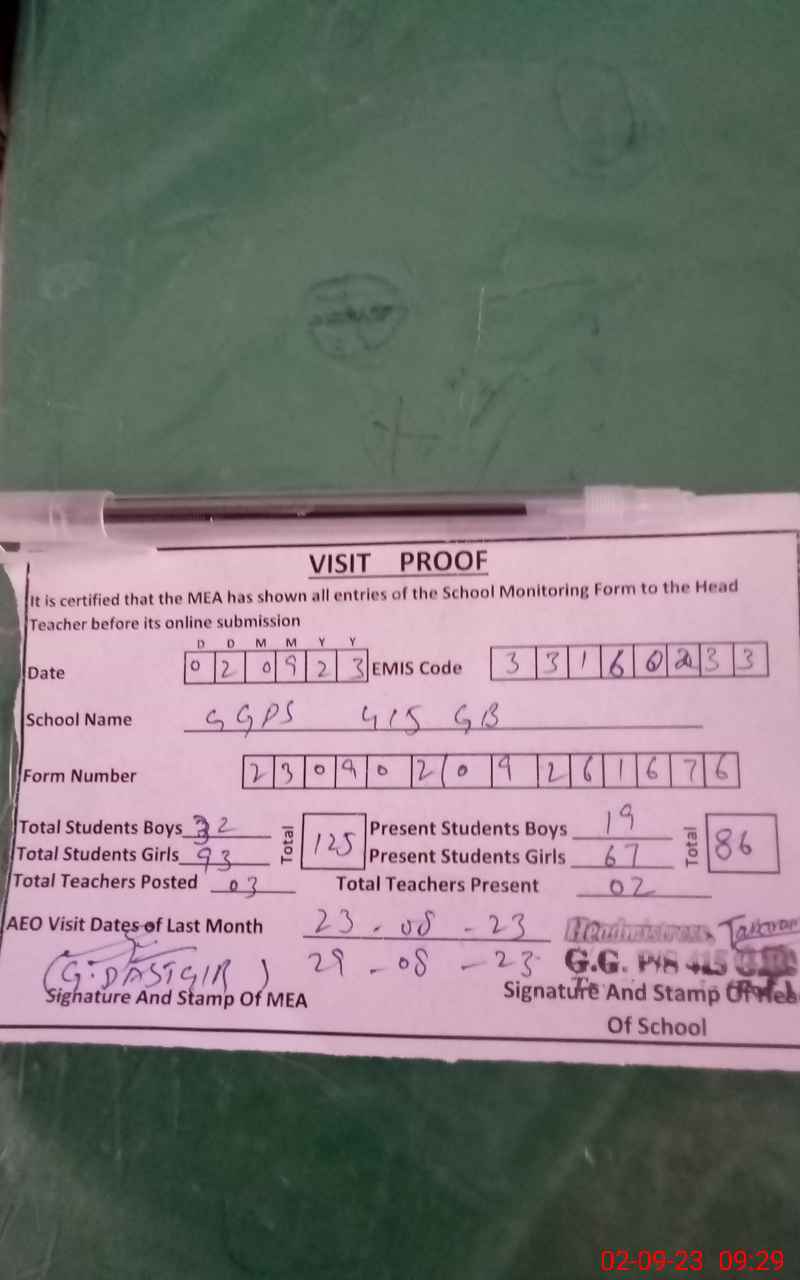 VISIT PROOF
It is certified that the MEA has shown all entries of the School Monitoring Form to the Head
Teacher before its online submission
D D M M Y Y
Date 0 2 0 9 2 3 EMIS Code 3 3 1 6 0 2 3 3
School Name GGPS 415 GB
Form Number 2 3 0 9 0 2 0 9 2 6 1 6 7 6
Total Students Boys 32 Total 125 Present Students Boys 19 Total 86
Total Students Girls 93 Present Students Girls 67
Total Teachers Posted 03 Total Teachers Present 02
AEO Visit Dates of Last Month 23-08-23
(G.DASTGIR) 29-08-23 G.G. P/S 415
Signature And Stamp Of MEA Signature And Stamp Of
Of School
02-09-23 09:29